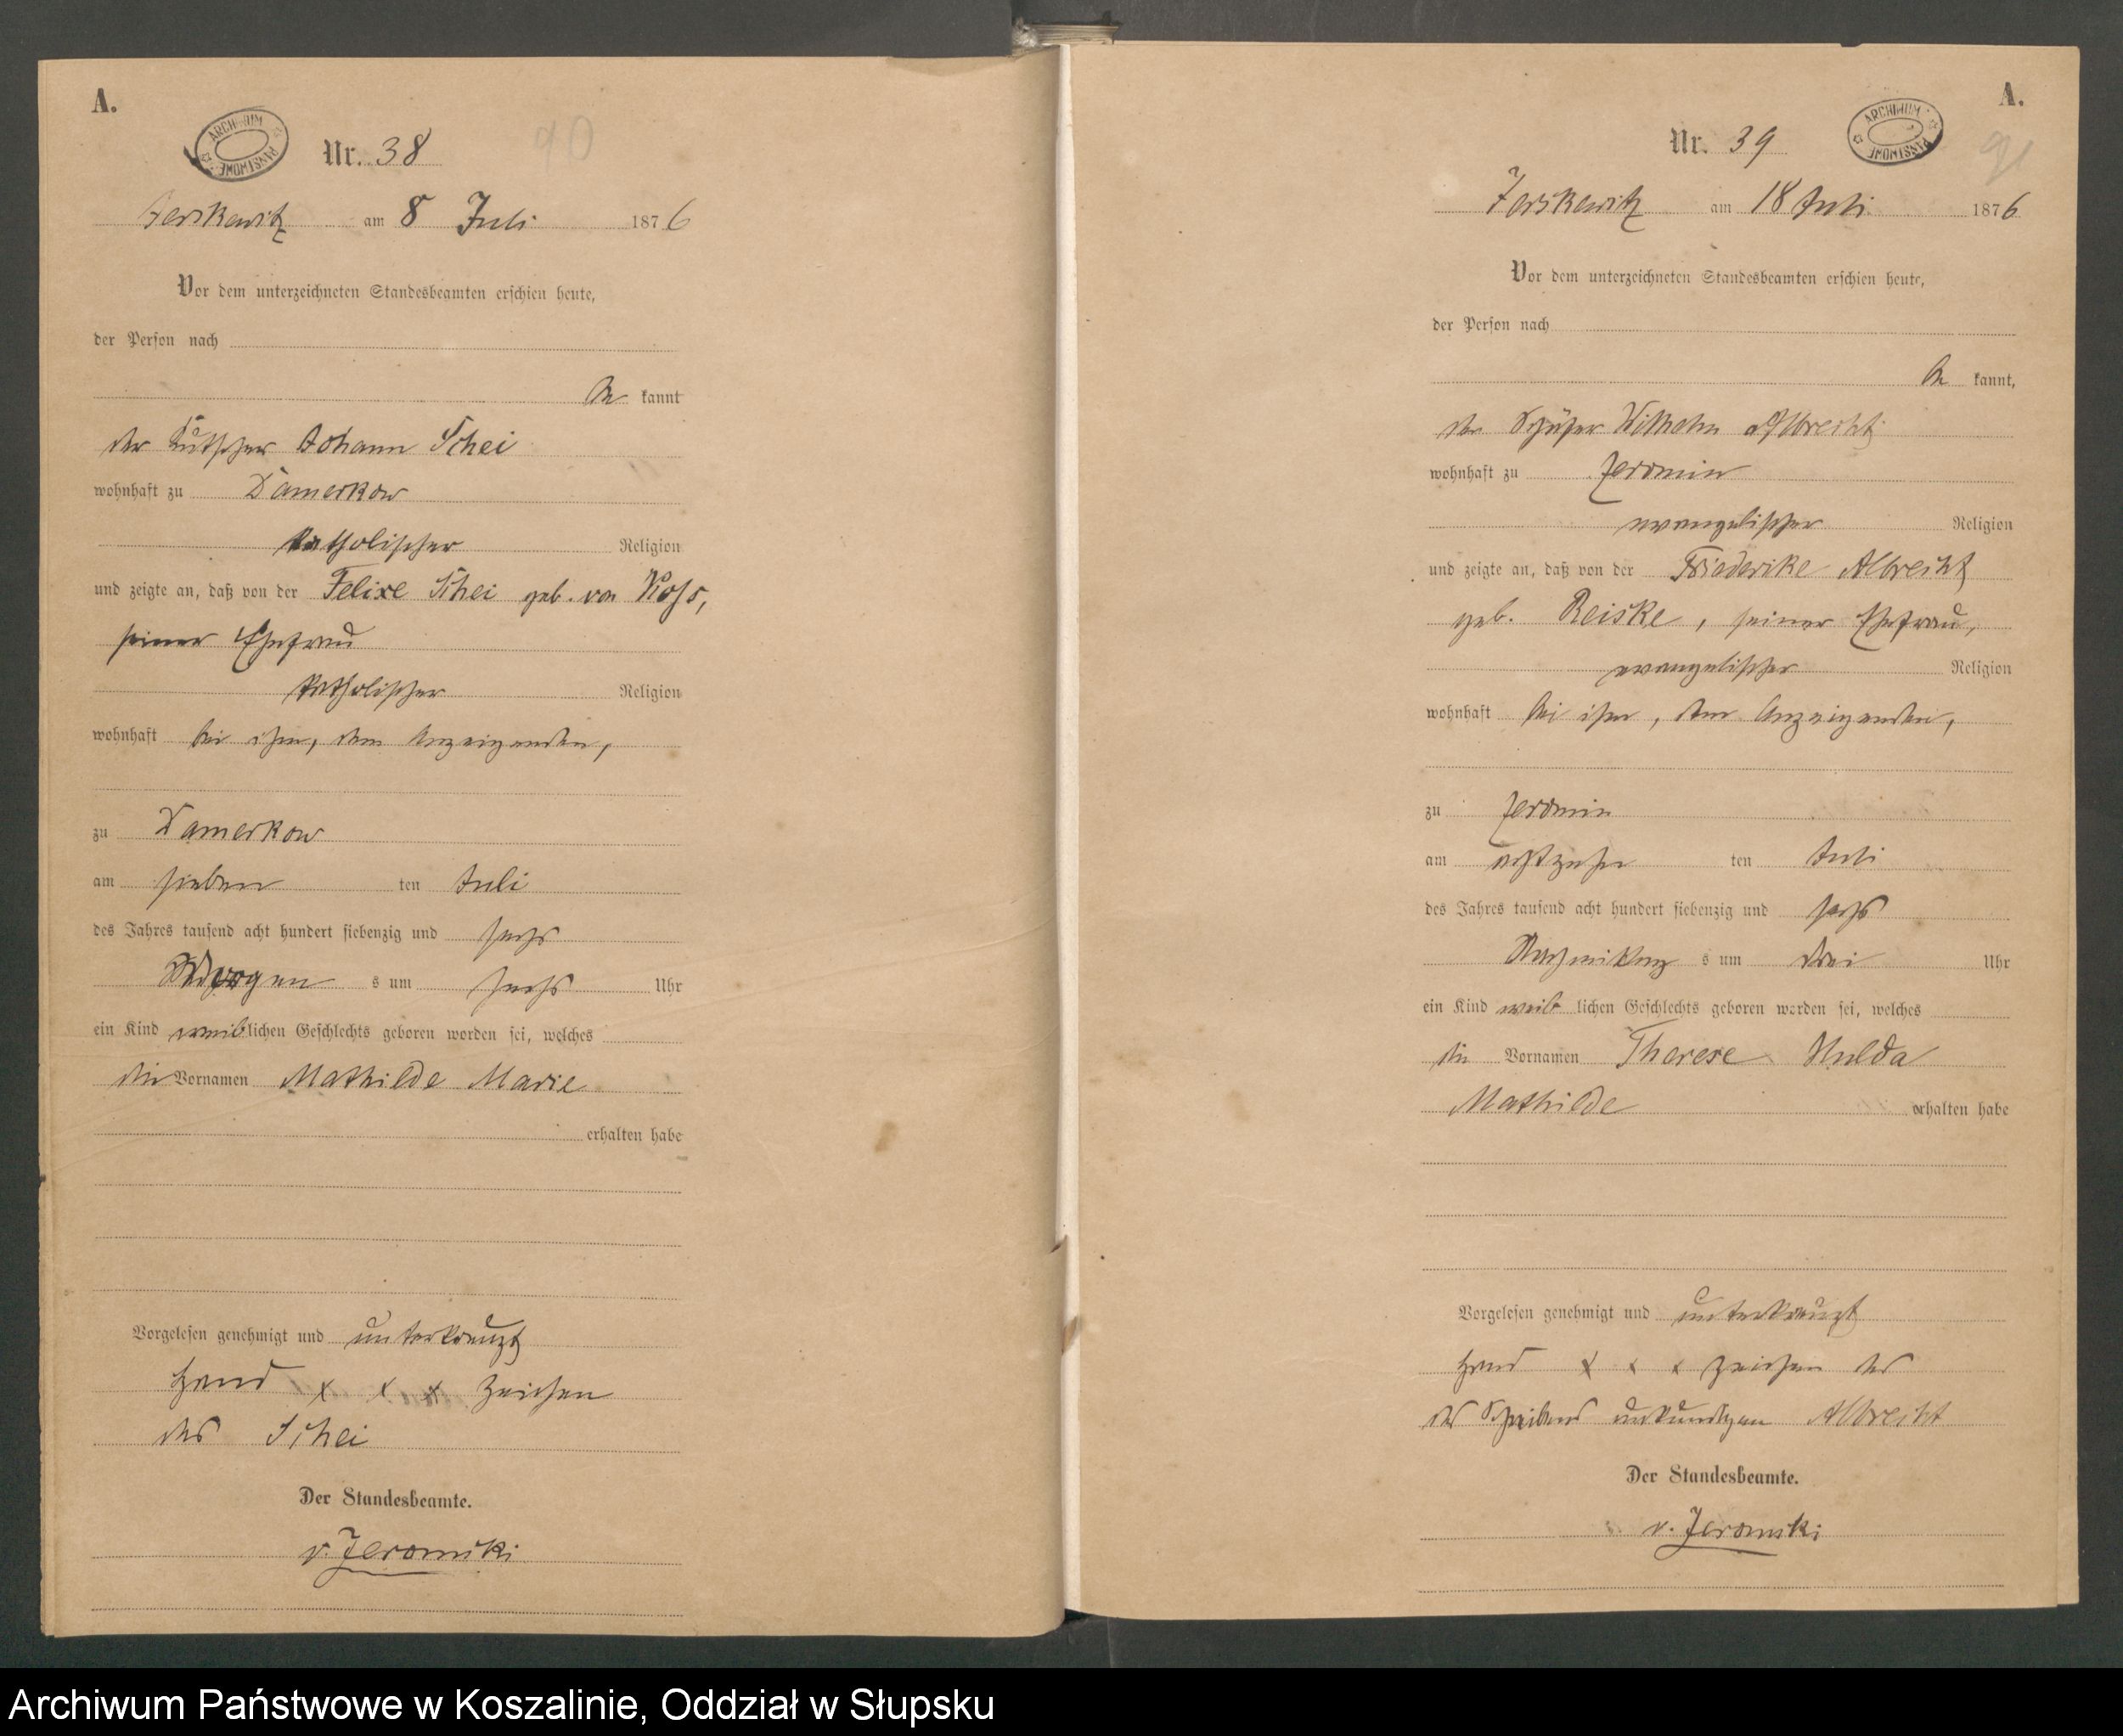 A.
ARCHIWUM PAŃSTWOWE
Nr. 38
90
Jerskewitz am 8 Juli 1876
Vor dem unterzeichneten Standesbeamten erschien heute,
der Person nach
be kannt
der Kutscher Johann Schei
wohnhaft zu Damerkow
katholischer Religion
und zeigte an, daß von der Felixe Schei geb. von Koss,
seiner Ehefrau
katholischer Religion
wohnhaft bei ihm, dem Anzeigenden,
zu Damerkow
am sieben ten Juli
des Jahres tausend acht hundert siebenzig und sechs
Morgen s um sechs Uhr
ein Kind weiblichen Geschlechts geboren worden sei, welches
die Vornamen Mathilde Marie
erhalten habe
Vorgelesen genehmigt und unterkreuzt
Hand x x x Zeichen
des Schei
Der Standesbeamte.
v. Jeromski
A.
ARCHIWUM PAŃSTWOWE
Nr. 39
91
Jerskewitz am 18 Juli 1876
Vor dem unterzeichneten Standesbeamten erschien heute,
der Person nach
be kannt,
der Schäfer Wilhelm Albrecht
wohnhaft zu Jeromin
evangelischer Religion
und zeigte an, daß von der Friederike Albrecht
geb. Reiske, seiner Ehefrau,
evangelischer Religion
wohnhaft bei ihm, dem Anzeigenden,
zu Jeromin
am achtzehn ten Juli
des Jahres tausend acht hundert siebenzig und sechs
Nachmittag s um drei Uhr
ein Kind weib lichen Geschlechts geboren worden sei, welches
die Vornamen Therese Hulda
Mathilde erhalten habe
Vorgelesen genehmigt und unterkreuzt
Hand x x x Zeichen des
des Schreibens unkundigen Albrecht
Der Standesbeamte.
v. Jeromski
Archiwum Państwowe w Koszalinie, Oddział w Słupsku